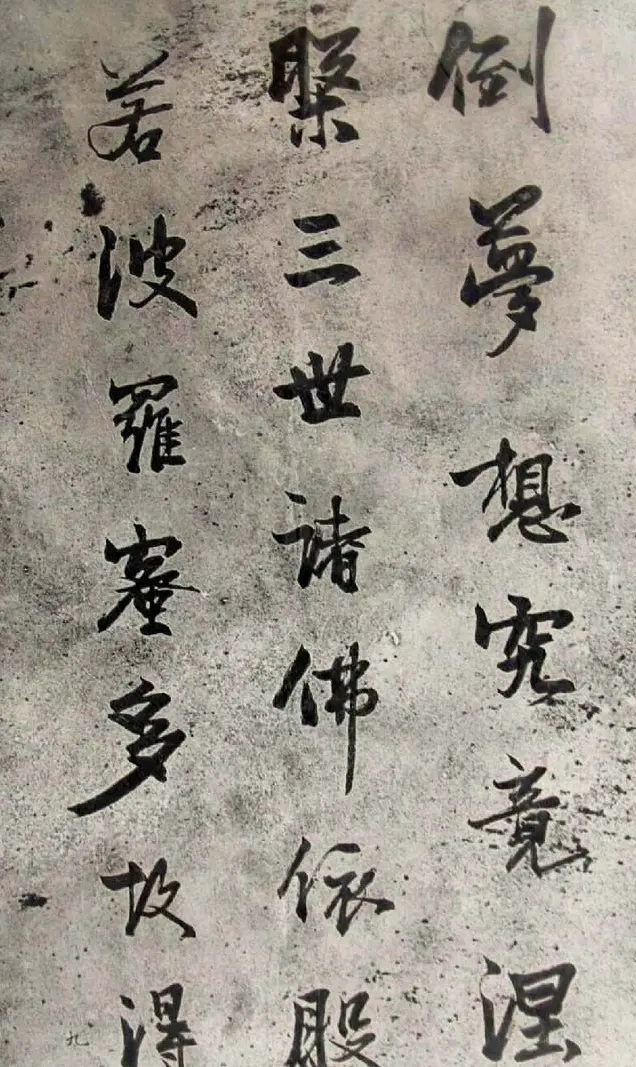 倒夢想究竟涅
槃三世諸佛依般
若波羅蜜多故得
九